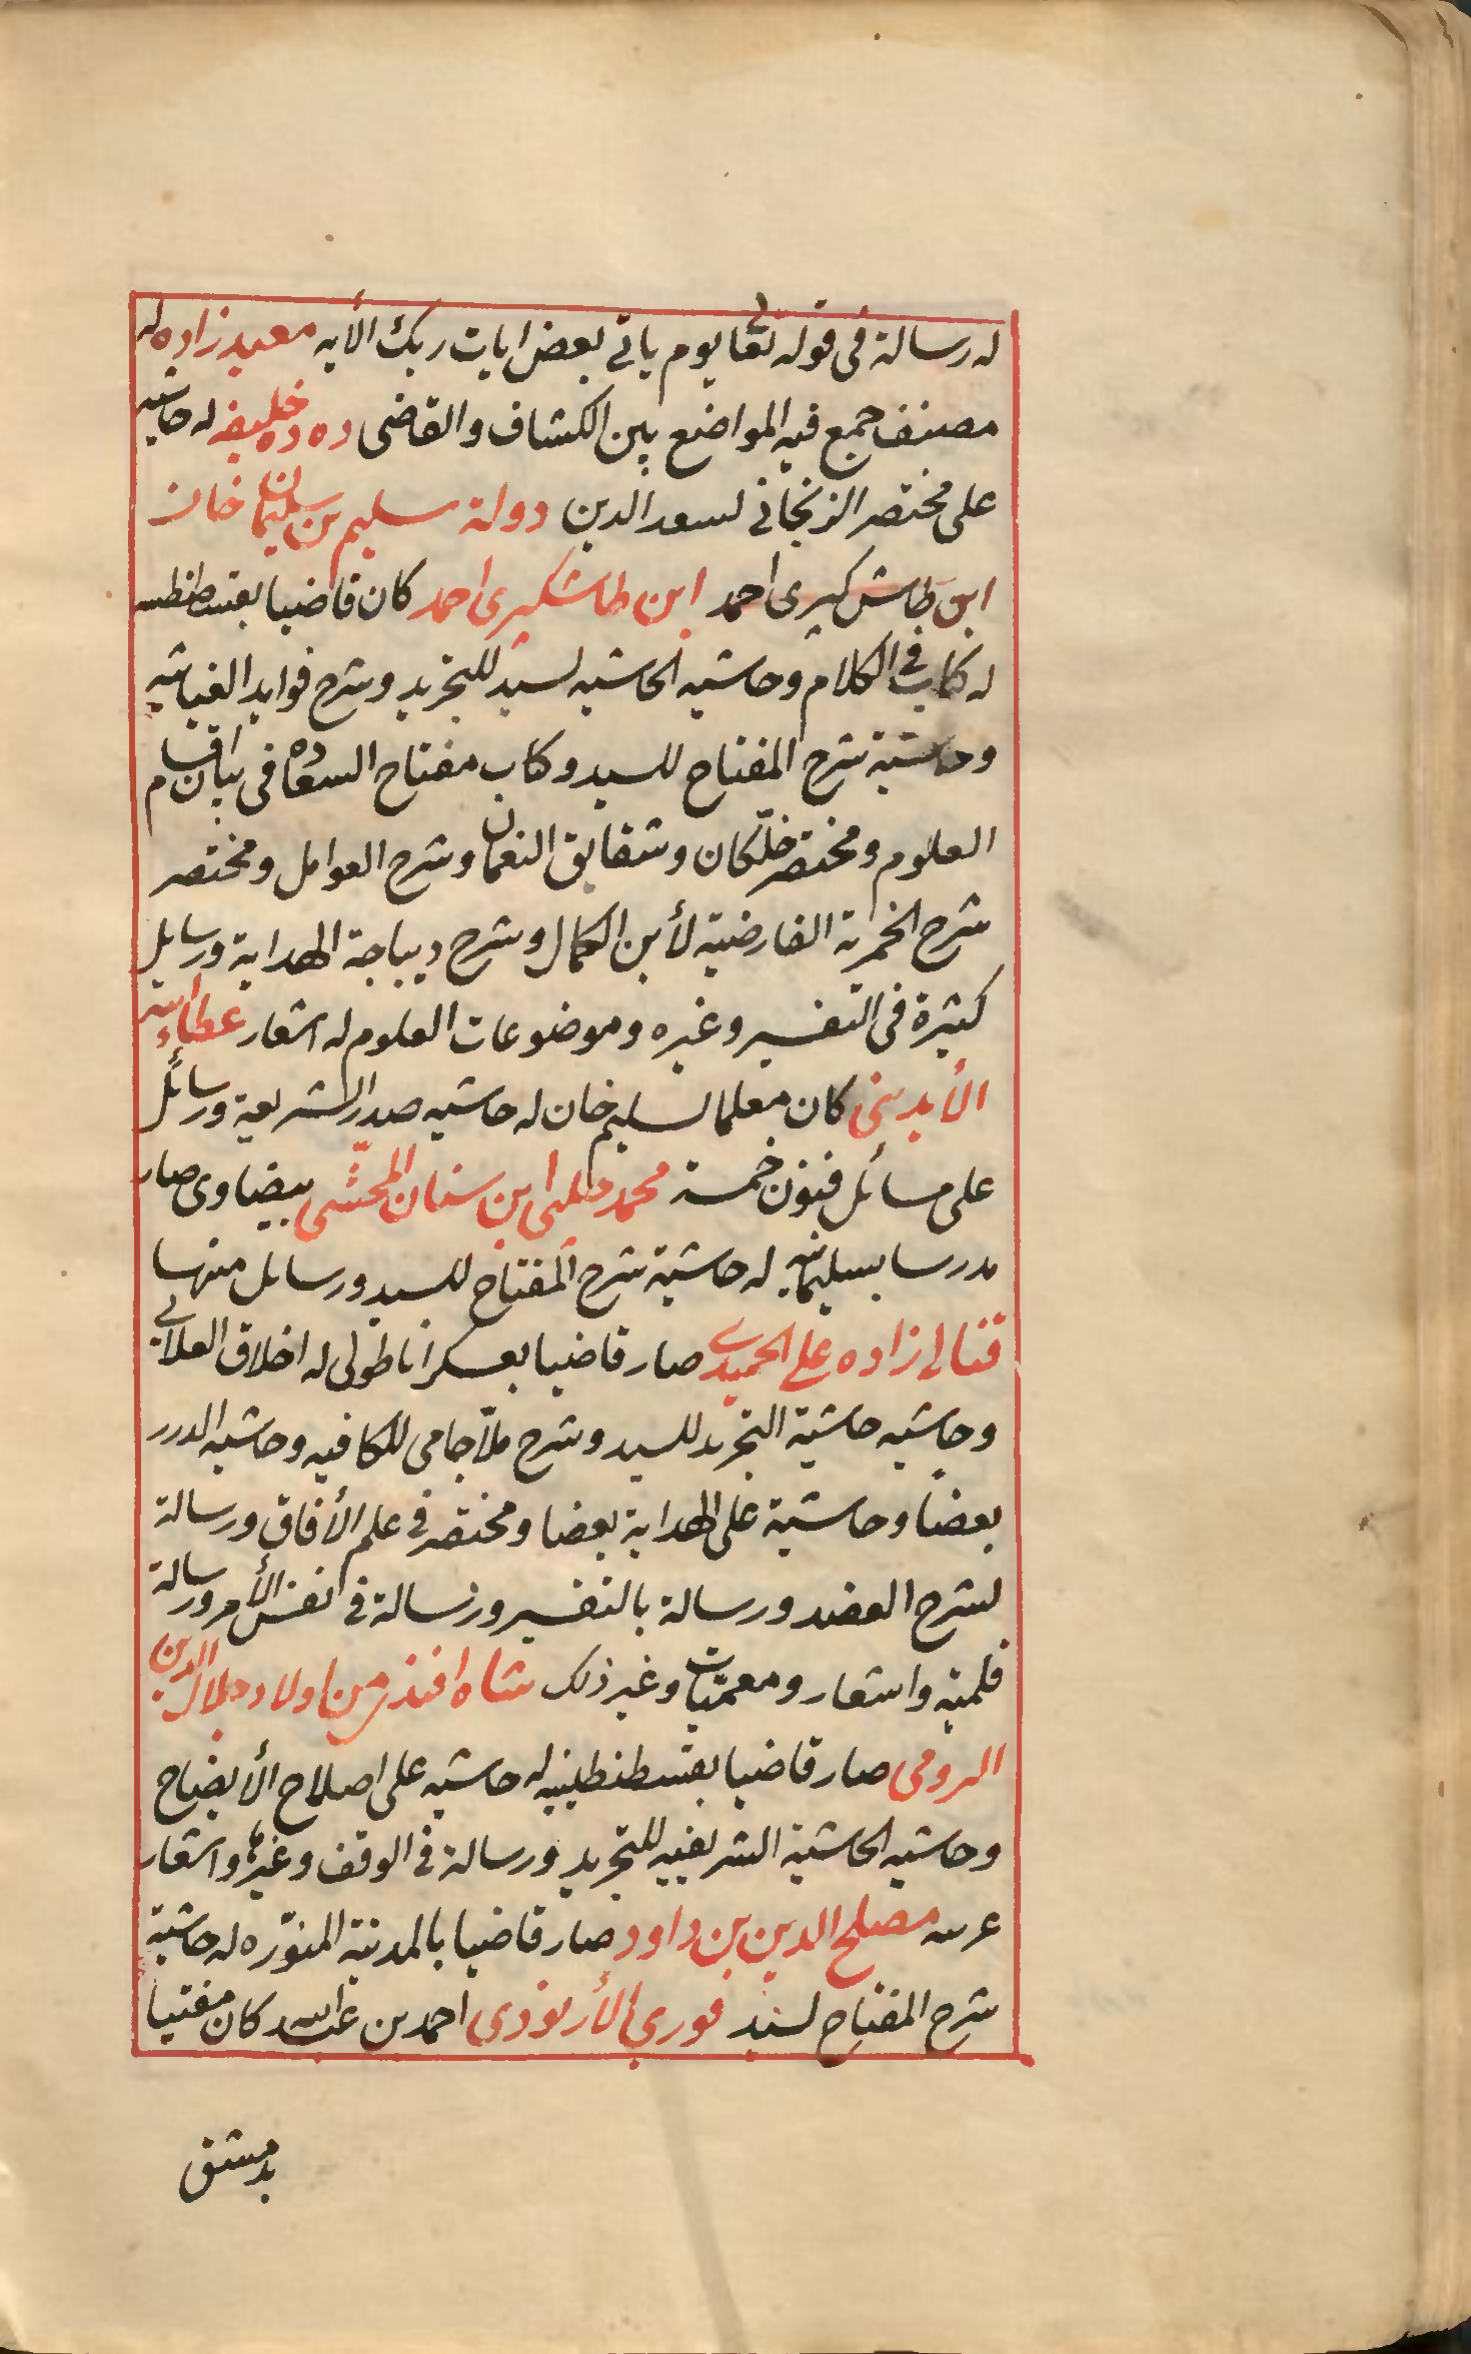 له رسالة فى قوله تعالى يوم ياتى بعض ايات ربك الأيه معيد زاده له
مصنف جمع فيه المواضع بين الكشاف والقاضى ده ده خليفه له حاشيه
على مختصر الزنجانى لسعد الدين دولة سليم بن سليمان خان
ابن طاش كبرى احمد ابن طاشكبرى احمد كان قاضيا بقسطنطنيه
له كتاب فى الكلام وحاشيه الحاشيه لسيد للتجريد وشرح فوايد الغياثيه
وحاشية شرح المفتاح للسيد وكتاب مفتاح السعاده فى بيان اقسام
العلوم ومختصر خلّكان وشقايق النعمان وشرح العوامل ومختصر
شرح الخمرية الفارضية لأبن الكمال وشرح ديباجة الهداية ورسايل
كثيرة فى التفسير وغيره وموضوعات العلوم له اشعار عطاء الله
الأيدينى كان معلما لسليم خان له حاشيه صدر الشريعة ورسائل
على مسائل فنون خمسة محمد چلبى ابن سنان المحشّى بيضاوى صار
مدرسا بسليمانيه له حاشية شرح المفتاح للسيد ورسايل منها
قنالى زاده على الحميدى صار قاضيا بعسكر اناطولى له اخلاق العلائى
وحاشيه حاشية التجريد للسيد وشرح ملاّ جامى للكافيه وحاشيه الدرر
بعضا وحاشية على الهداية بعضا ومختصر فى علم الأفاق ورسالة
لشرح العضد ورسالة بالتفسير ورسالة فى نفس الأمر ورسالة
قلميّه واشعار ومعمّيات وغير ذلك شاه افندى من اولاد جلال الدين
الرومى صار قاضيا بقسطنطينيه له حاشيه على اصلاح الأيضاح
وحاشيه الحاشية الشريفيه للتجريد ورسالة فى الوقف وغيرها واشعار
عربيه مصلح الدين بن داود صار قاضيا بالمدينة المنوّره له حاشية
شرح المفتاح لسيد فورى الأرنودى احمد بن عبد الله كان مفتيا
بدمشق